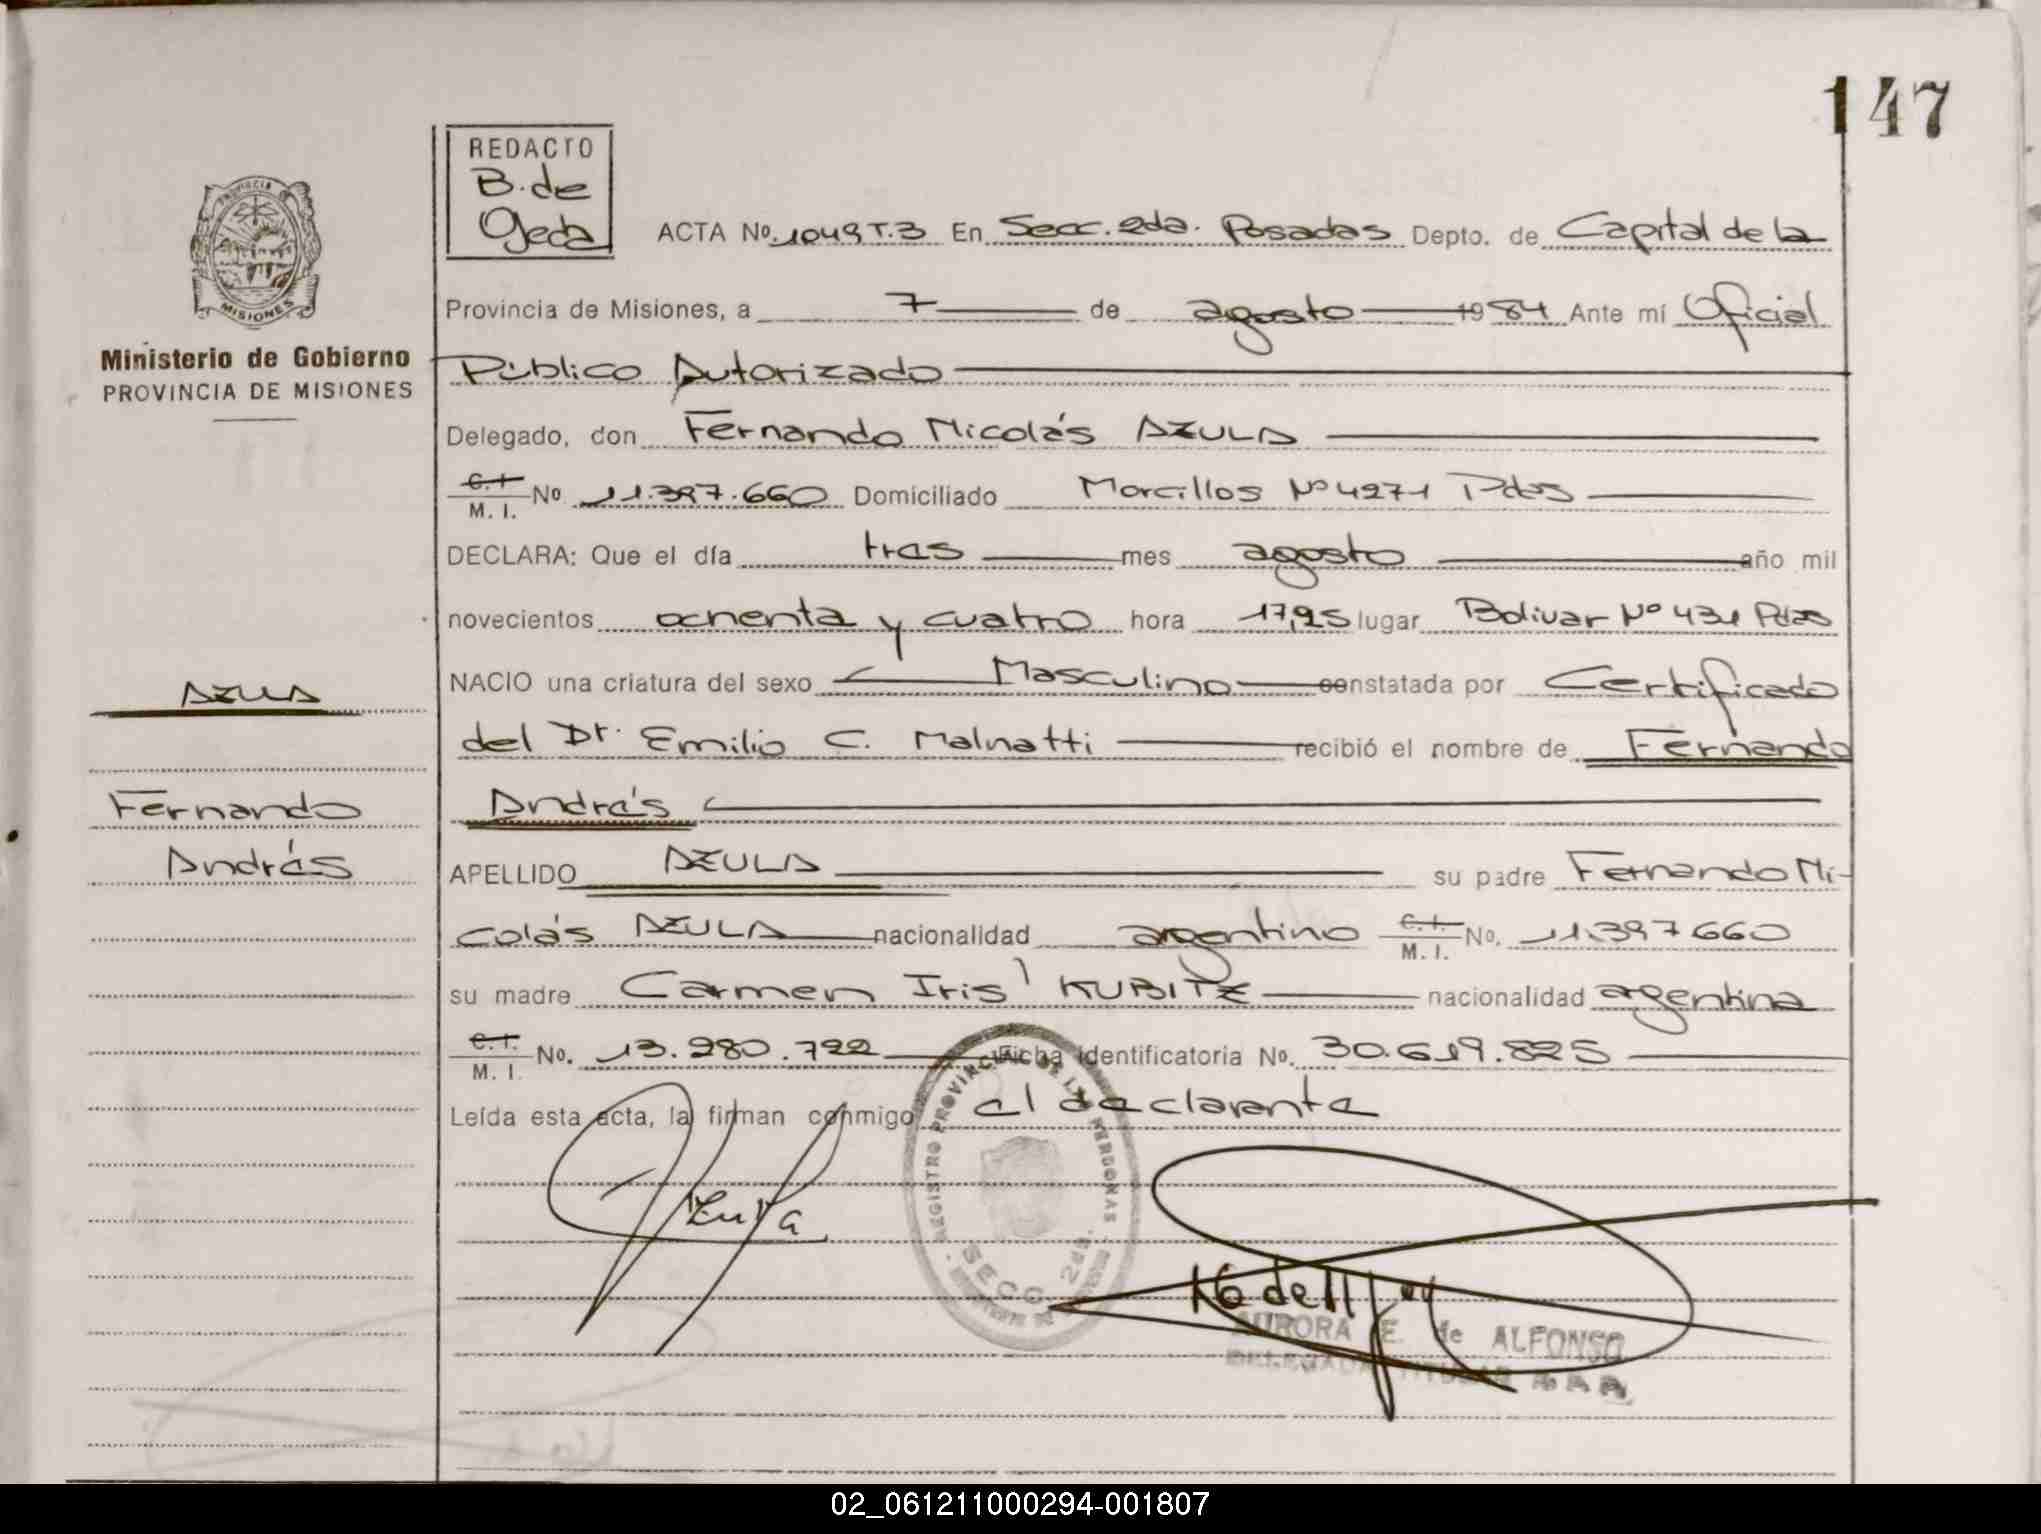 147
REDACTO
B. de
Ojeda
PROVINCIA
MISIONES
Ministerio de Gobierno
PROVINCIA DE MISIONES
ACTA No. 1049 T.3 En Secc. 2da. Posadas Depto. de Capital de la
Provincia de Misiones, a 7 de agosto 1984 Ante mí Oficial
Público Autorizado
Delegado, don Fernando Nicolás AZULA
C.I. M. I. No 11.397.660 Domiciliado Morcillos Nº 4271 Pdas
DECLARA: Que el día tres mes agosto año mil
novecientos ochenta y cuatro hora 17,25 lugar Bolivar Nº 431 Pdas
NACIO una criatura del sexo Masculino constatada por Certificado
del Dr. Emilio C. Malnatti recibió el nombre de Fernando
Andrés
APELLIDO AZULA su padre Fernando Ni-
colás AZULA nacionalidad argentino C.I. M. I. No. 11.397660
su madre Carmen Iris KUBITZ nacionalidad argentina
C.I. M. I. No. 13.280.722 Ficha Identificatoria No. 30.619.825
Leída esta acta, la firman conmigo el declarante
AZULA
Fernando
Andrés
Azula
REGISTRO PROVINCIAL DE LAS PERSONAS
SECC. 2da.
AURORA E. de ALFONSO
DELEGADA TITULAR
02_061211000294-001807